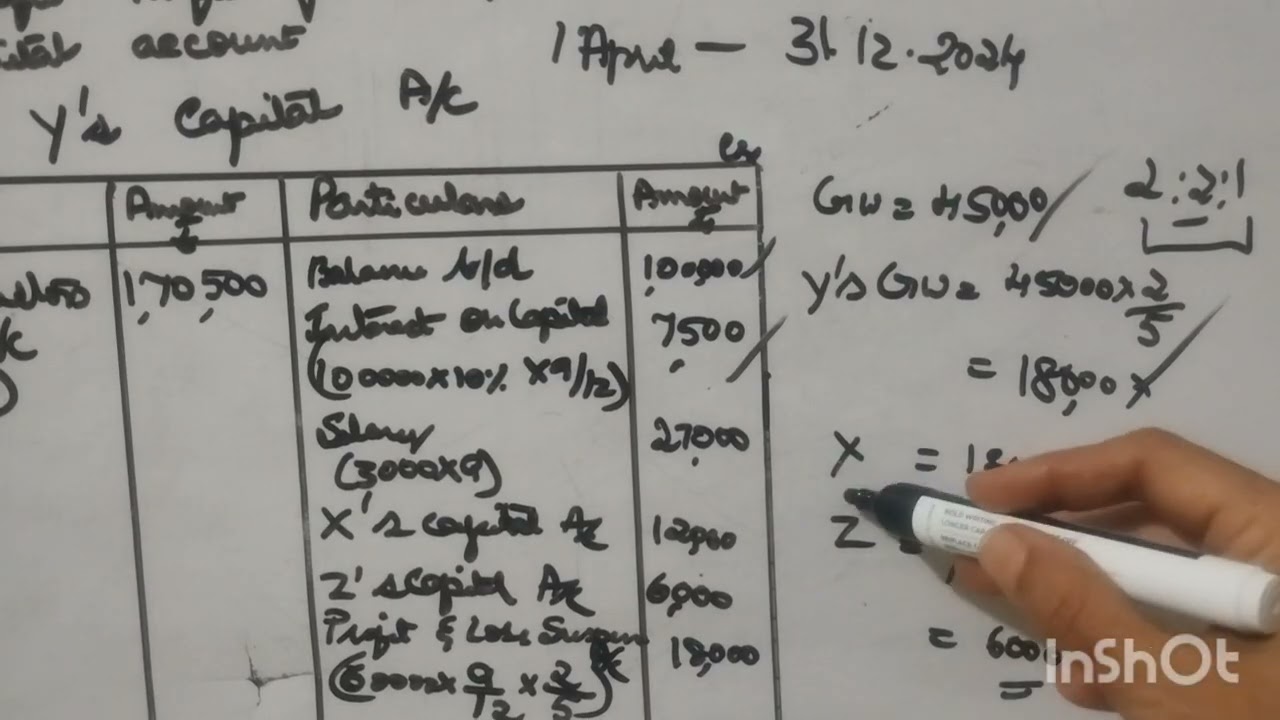 account
1 April – 31.12.2024
Y's Capital A/c
Cr
Amount Particulars Amount
170,500 Balance b/d 100,000
Interest on Capital 7500
(100000 x 10% x 9/12)
Salary 27,000
(3000x9)
X's capital A/c 12,000
Z's Capital A/c 6,000
Profit & Loss Suspen A/c 18,000
(60000 x 9/12 x 2/5)
GW = 45,000 2:2:1
Y's GW = 45000 x 2/5
= 18,000
X =
Z =
= 6000
InShOt